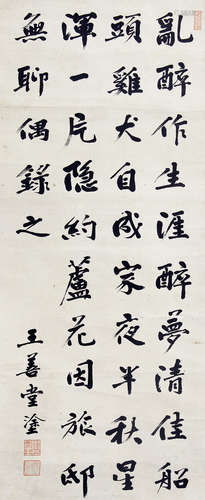 亂醉作生涯醉夢清佳船
頭雞犬自成家夜半秋星
渾一片隐約蘆花因旅邸
無聊偶錄之
王善堂塗